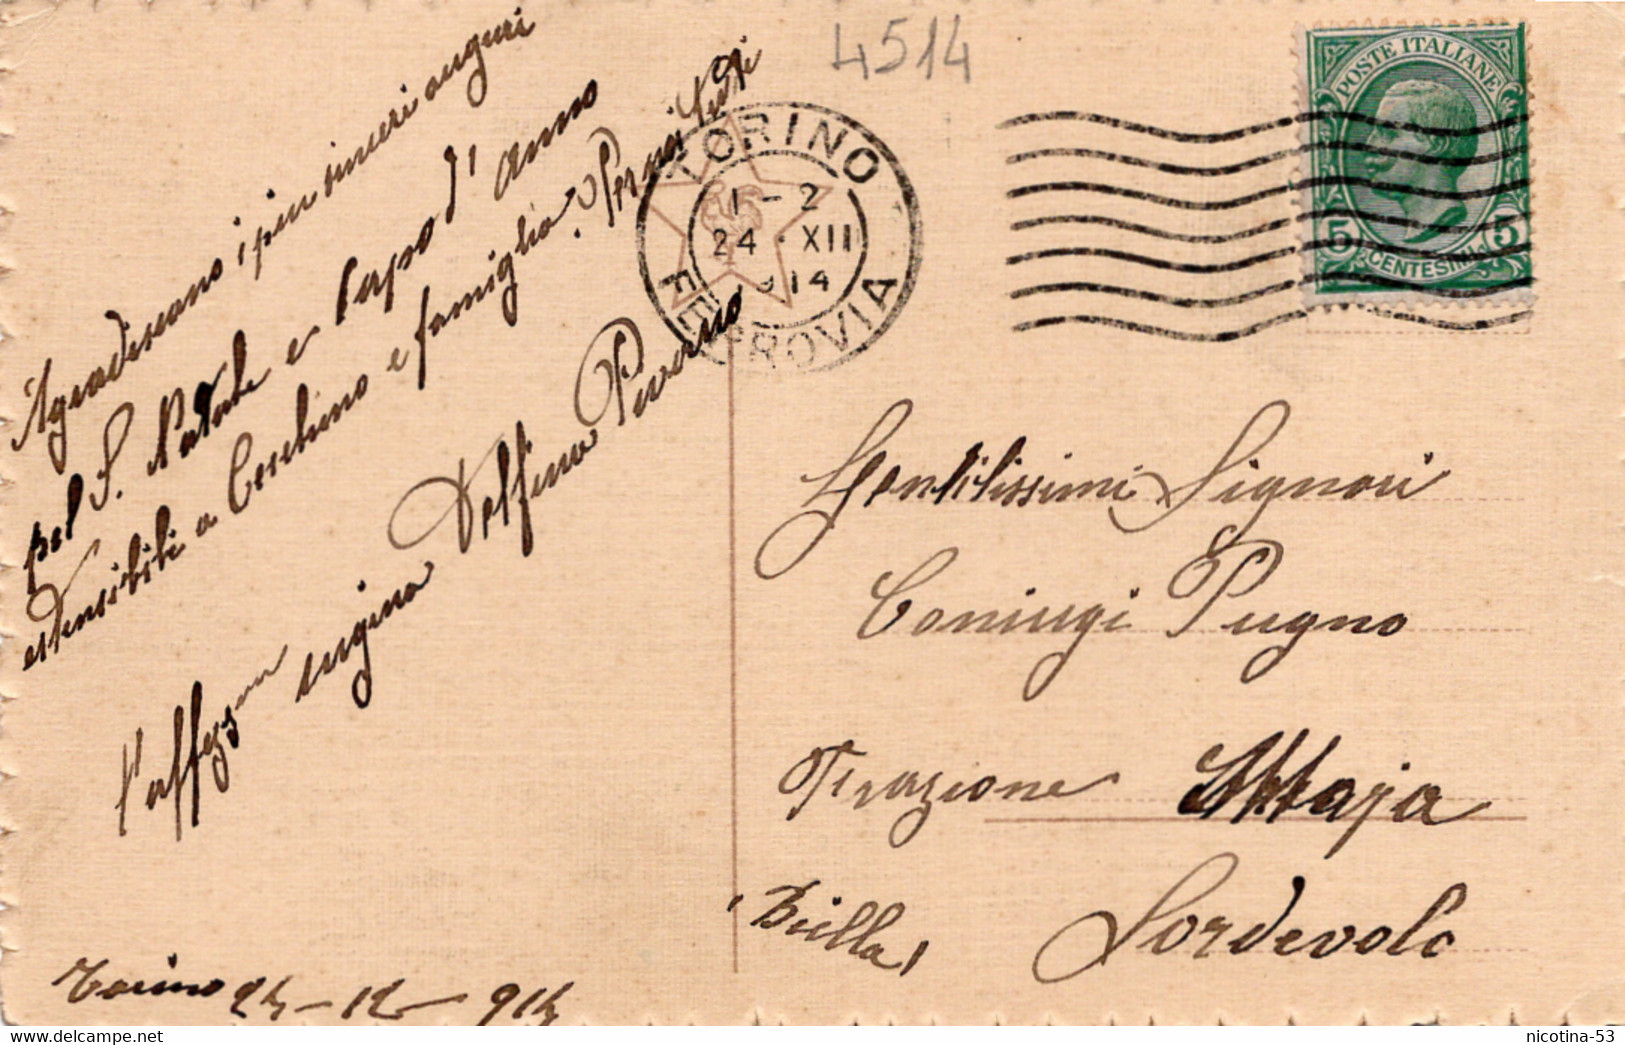 4514
POSTE ITALIANE
5 CENTESIMI 5
TORINO
1-2
24·XII
914
FERROVIA
Aggradiscano i più sinceri auguri
pel S. Natale e Capo d'anno
estensibili a Ceschino e famiglia
l'affezion cugina Delfina
Torino 24-12-914
Gentilissimi Signori
Coniugi Pugno
Frazione
Sordevolo
(Biella)
nicotina-53